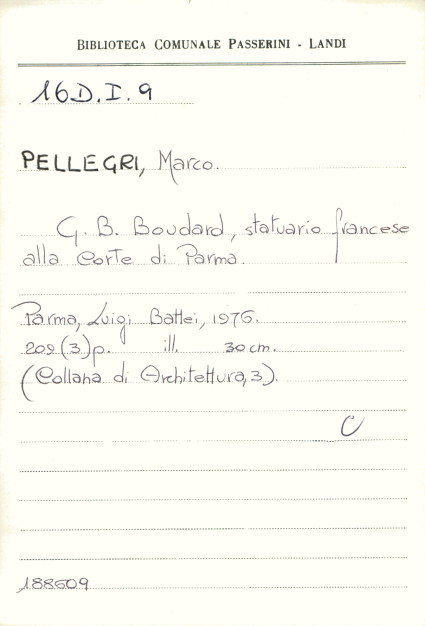 BIBLIOTECA COMUNALE PASSERINI - LANDI
16D.I.9
PELLEGRI, Marco.
G. B. Boudard, statuario francese
alla Corte di Parma.
Parma, Luigi Battei, 1976.
209(3)p. ill. 30 cm.
(Collana di Architettura, 3).
C
188609